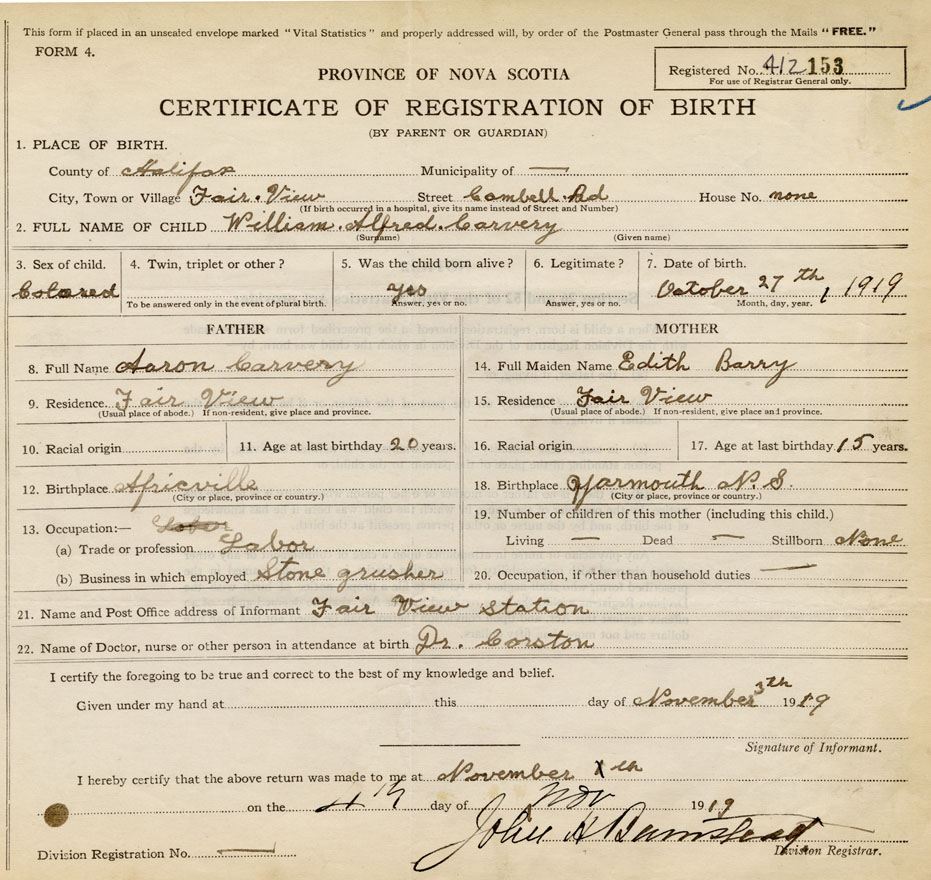 This form if placed in an unsealed envelope marked "Vital Statistics" and properly addressed will, by order of the Postmaster General pass through the Mails "FREE."
FORM 4.
Registered No. 412 153
For use of Registrar General only.
PROVINCE OF NOVA SCOTIA
CERTIFICATE OF REGISTRATION OF BIRTH
(BY PARENT OR GUARDIAN)
1. PLACE OF BIRTH.
County of Halifax Municipality of —
City, Town or Village Fair. View Street Cambell. Rd House No. none
(If birth occurred in a hospital, give its name instead of Street and Number)
2. FULL NAME OF CHILD William. Alfred. Carvery
(Surname) (Given name)
3. Sex of child. 4. Twin, triplet or other? 5. Was the child born alive? 6. Legitimate? 7. Date of birth.
Colored yes October 27th, 1919
To be answered only in the event of plural birth. Answer, yes or no. Answer, yes or no. Month, day, year.
FATHER
8. Full Name Aaron Carvery
9. Residence. Fair View
(Usual place of abode.) If non-resident, give place and province.
10. Racial origin 11. Age at last birthday 20 years.
12. Birthplace Africville
(City or place, province or country.)
13. Occupation:— Labor
(a) Trade or profession Labor
(b) Business in which employed Stone grusher
MOTHER
14. Full Maiden Name Edith Barry
15. Residence Fair View
(Usual place of abode.) If non-resident, give place and province.
16. Racial origin 17. Age at last birthday 15 years.
18. Birthplace Yarmouth N. S.
(City or place, province or country.)
19. Number of children of this mother (including this child.)
Living — Dead — Stillborn None
20. Occupation, if other than household duties —
21. Name and Post Office address of Informant Fair View Station
22. Name of Doctor, nurse or other person in attendance at birth Dr. Corston
I certify the foregoing to be true and correct to the best of my knowledge and belief.
Given under my hand at this day of November 3th 1919
Signature of Informant.
I hereby certify that the above return was made to me at November th
on the 4th day of Nov 1919
John A Bumstead
Division Registration No. — Division Registrar.